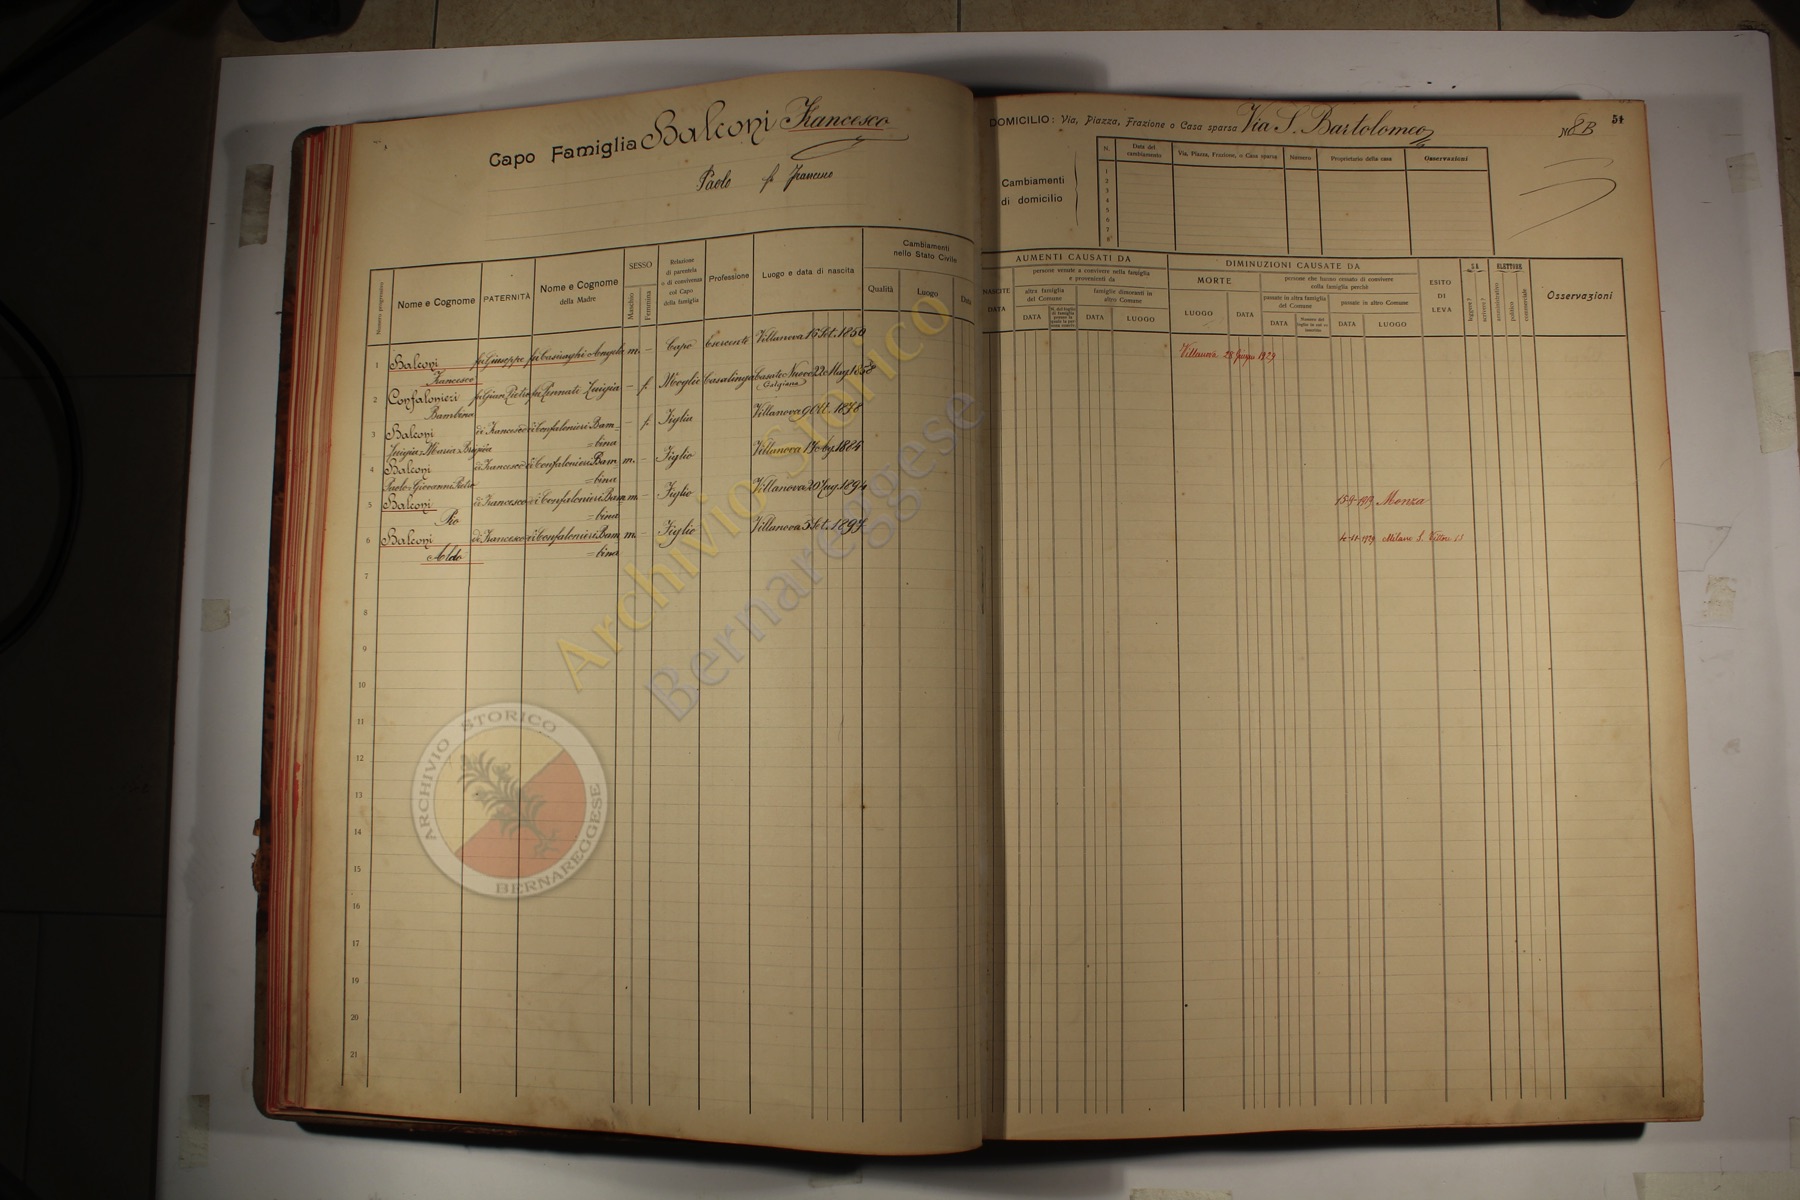 Capo Famiglia Balconi Francesco
Paolo fu Francesco
Numero progressivo
Nome e Cognome
PATERNITÀ
Nome e Cognome
della Madre
SESSO
Maschio
Femmina
Relazione
di parentela
o di convivenza
col Capo
della famiglia
Professione
Luogo e data di nascita
Cambiamenti
nello Stato Civile
Qualità
Luogo
Data
1 Balconi fu Giuseppe fu Casiraghi Angela m. – Capo Esercente Villanova 15 Set. 1850
Francesco
2 Confalonieri fu Gian Pietro fu Pennati Luigia – f. Moglie Casalinga Casate Nuovo 22 Mag. 1858
Bambina Galgiana
3 Balconi di Francesco di Confalonieri Bam= – f. Figlia Villanova 9 Ott. 1878
Luigia Maria Brigida =bina
4 Balconi di Francesco di Confalonieri Bam m. – Figlio Villanova
Paolo Giovanni Pietro =bina
5 Balconi di Francesco di Confalonieri Bam m. – Figlio Villanova 20 1894
Pio =bina
6 Balconi di Francesco di Confalonieri Bam m. – Figlio Villanova 5 Set. 1897
Aldo =bina
7
8
9
10
11
12
13
14
15
16
17
19
20
21
DOMICILIO: Via, Piazza, Frazione o Casa sparsa Via S. Bartolomeo
N 8B
54
Cambiamenti
di domicilio
N.
Data del
cambiamento
Via, Piazza, Frazione, o Casa sparsa
Numero
Proprietario della casa
Osservazioni
1
2
3
4
5
6
7
8
AUMENTI CAUSATI DA
NASCITE
DATA
persone venute a convivere nella famiglia
e provenienti da
altra famiglia
del Comune
famiglie dimoranti in
altro Comune
DATA
DATA
LUOGO
DIMINUZIONI CAUSATE DA
MORTE
LUOGO
DATA
persone che hanno cessato di convivere
colla famiglia perchè
passate in altra famiglia
del Comune
passate in altro Comune
DATA
DATA
LUOGO
ESITO
DI
LEVA
SA
leggere?
scrivere?
ELETTORE
amministrativo
politico
commerciale
Osservazioni
Villanova 28 Giugno 1929
15-9-1919 Monza
10-11-1929 Milano S. Vittore 13
Archivio Storico
Bernareggese
ARCHIVIO STORICO
BERNAREGGESE